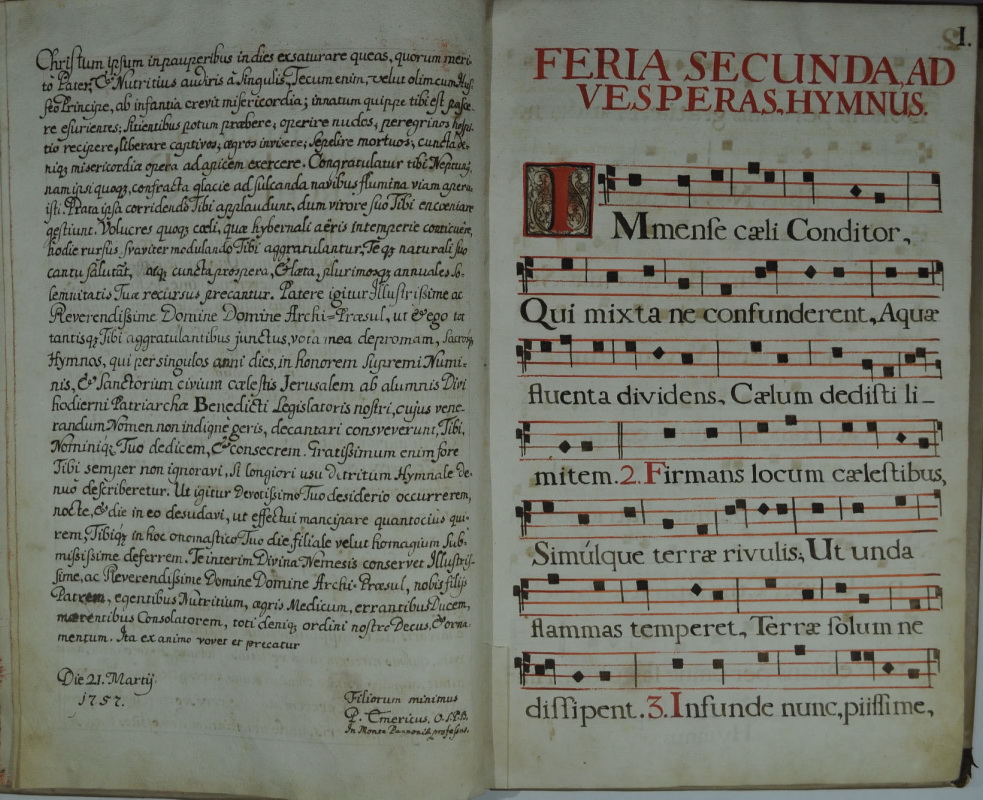 Chriſtum ipſum in pauperibus in dies exsaturare queas, quorum meri-
tò Pater, & Nutritius audiris à singulis, Tecum enim, velut olim cum Huſ-
ſeo Principe, ab infantia crevit miſericordia; innatum quippe tibi eſt paſce-
re eſurientes; ſitientibus potum præbere; operire nudos; peregrinos hoſpi-
tio recipere, liberare captivos; ægros inviſere; ſepelire mortuos; cuncta de-
niq; misericordiæ opera ad apicem exercere. Congratulatur tibi Neptung,
nam ipsi quoq; confracta glacie ad ſulcanda navibus flumina viam aperu-
iſti. Prata ipſa corridendo Tibi applaudunt, dum virore ſuo Tibi encœniare
geſtiunt. Volucres quoq; cœli, quæ hybernali aëris intemperie conticuêre,
hodie rurſus, ſvaviter modulando Tibi aggratulantur, Teq; naturali ſuo
cantu ſalutāt, atq; cuncta proſpera, & læta, plurimosq; annuales So-
lemnitatis Tuæ recursus precantur. Patere igitur Illuſtriſſime ac
Reverendiſſime Domine Domine Archi-Præsul, ut & ego tā
tantisq; Tibi aggratulantibus junctus, vota mea depromam, Sacroſq;
Hymnos, qui per singulos anni dies, in honorem Supremi Numi-
nis, & Sanctorum civium cæleſtis Jerusalem ab alumnis Divi
hodierni Patriarchæ Benedicti Legislatoris noſtri, cujus vene-
randum Nomen non indigne geris, decantari conſveverunt, Tibi,
Nominiq; Tuo dedicem, & consecrem. Gratiſſimum enim fore
Tibi semper non ignoravi, ſi longiori usu detritum Hymnale de-
nuò deſcriberetur. Ut igitur Devotiſſimo Tuo desiderio occurrerem,
nocte, & die in eo desudavi, ut effectui mancipare quantocius qui-
rem, Tibiq; in hoc onomaſtico Tuo die filiale velut homagium ſub-
miſsiſsime deferrem. Te interim Divina Nemesis conservet Illuſtriſ-
ſime, ac Reverendiſſime Domine Domine Archi-Præsul, nobis filijs
Patrem, egentibus Nutritium, ægris Medicum, errantibus Ducem,
mœrentibus Consolatorem, toti deniq; ordini noſtro Decus, & orna-
mentum. Ita ex animo vovet et precatur
Die 21. Martij.
1757.
Filiorum minimus
P. Emericus, O.S.P.B.
In Monte Pannoniæ profeſsus.
1.
FERIA SECUNDA, AD
VESPERAS, HYMNUS.
IMmenſe cæli Conditor,
Qui mixta ne confunderent, Aquæ
fluenta dividens, Cælum dediſti li-
mitem. 2. Firmans locum cæleſtibus,
Simúlque terræ rivulis; Ut unda
flammas temperet, Terræ ſolum ne
diſſipent. 3. Infunde nunc, piiſſime,